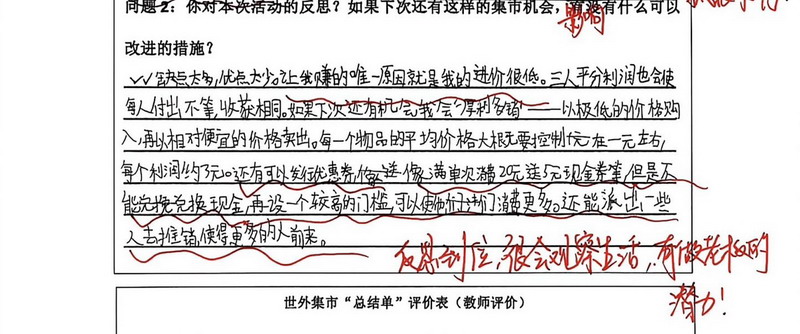 问题2：你对本次活动的反思？如果下次还有这样的集市机会，有没有什么可以
影响
改进的措施？
缺点太多，优点太少。让我赚的唯一原因就是我的进价很低。三人平分利润也会使
每人付出不等，收获相同。如果下次还有机会我会“厚利多销”——以极低的价格购
入，再以相对便宜的价格卖出。每一个物品的平均价格大概要控制在一元左右，
每个利润约3元。还有可以发行优惠券，做满单次消费20元送5元现金券等，但是不
能兑换现金，再设一个较高的门槛，可以使他们消费更多。还能派出一些
人去推销，使得更多的人前来。
反思到位，很会观察生活，有做老板的
潜力！
世外集市“总结单”评价表（教师评价）